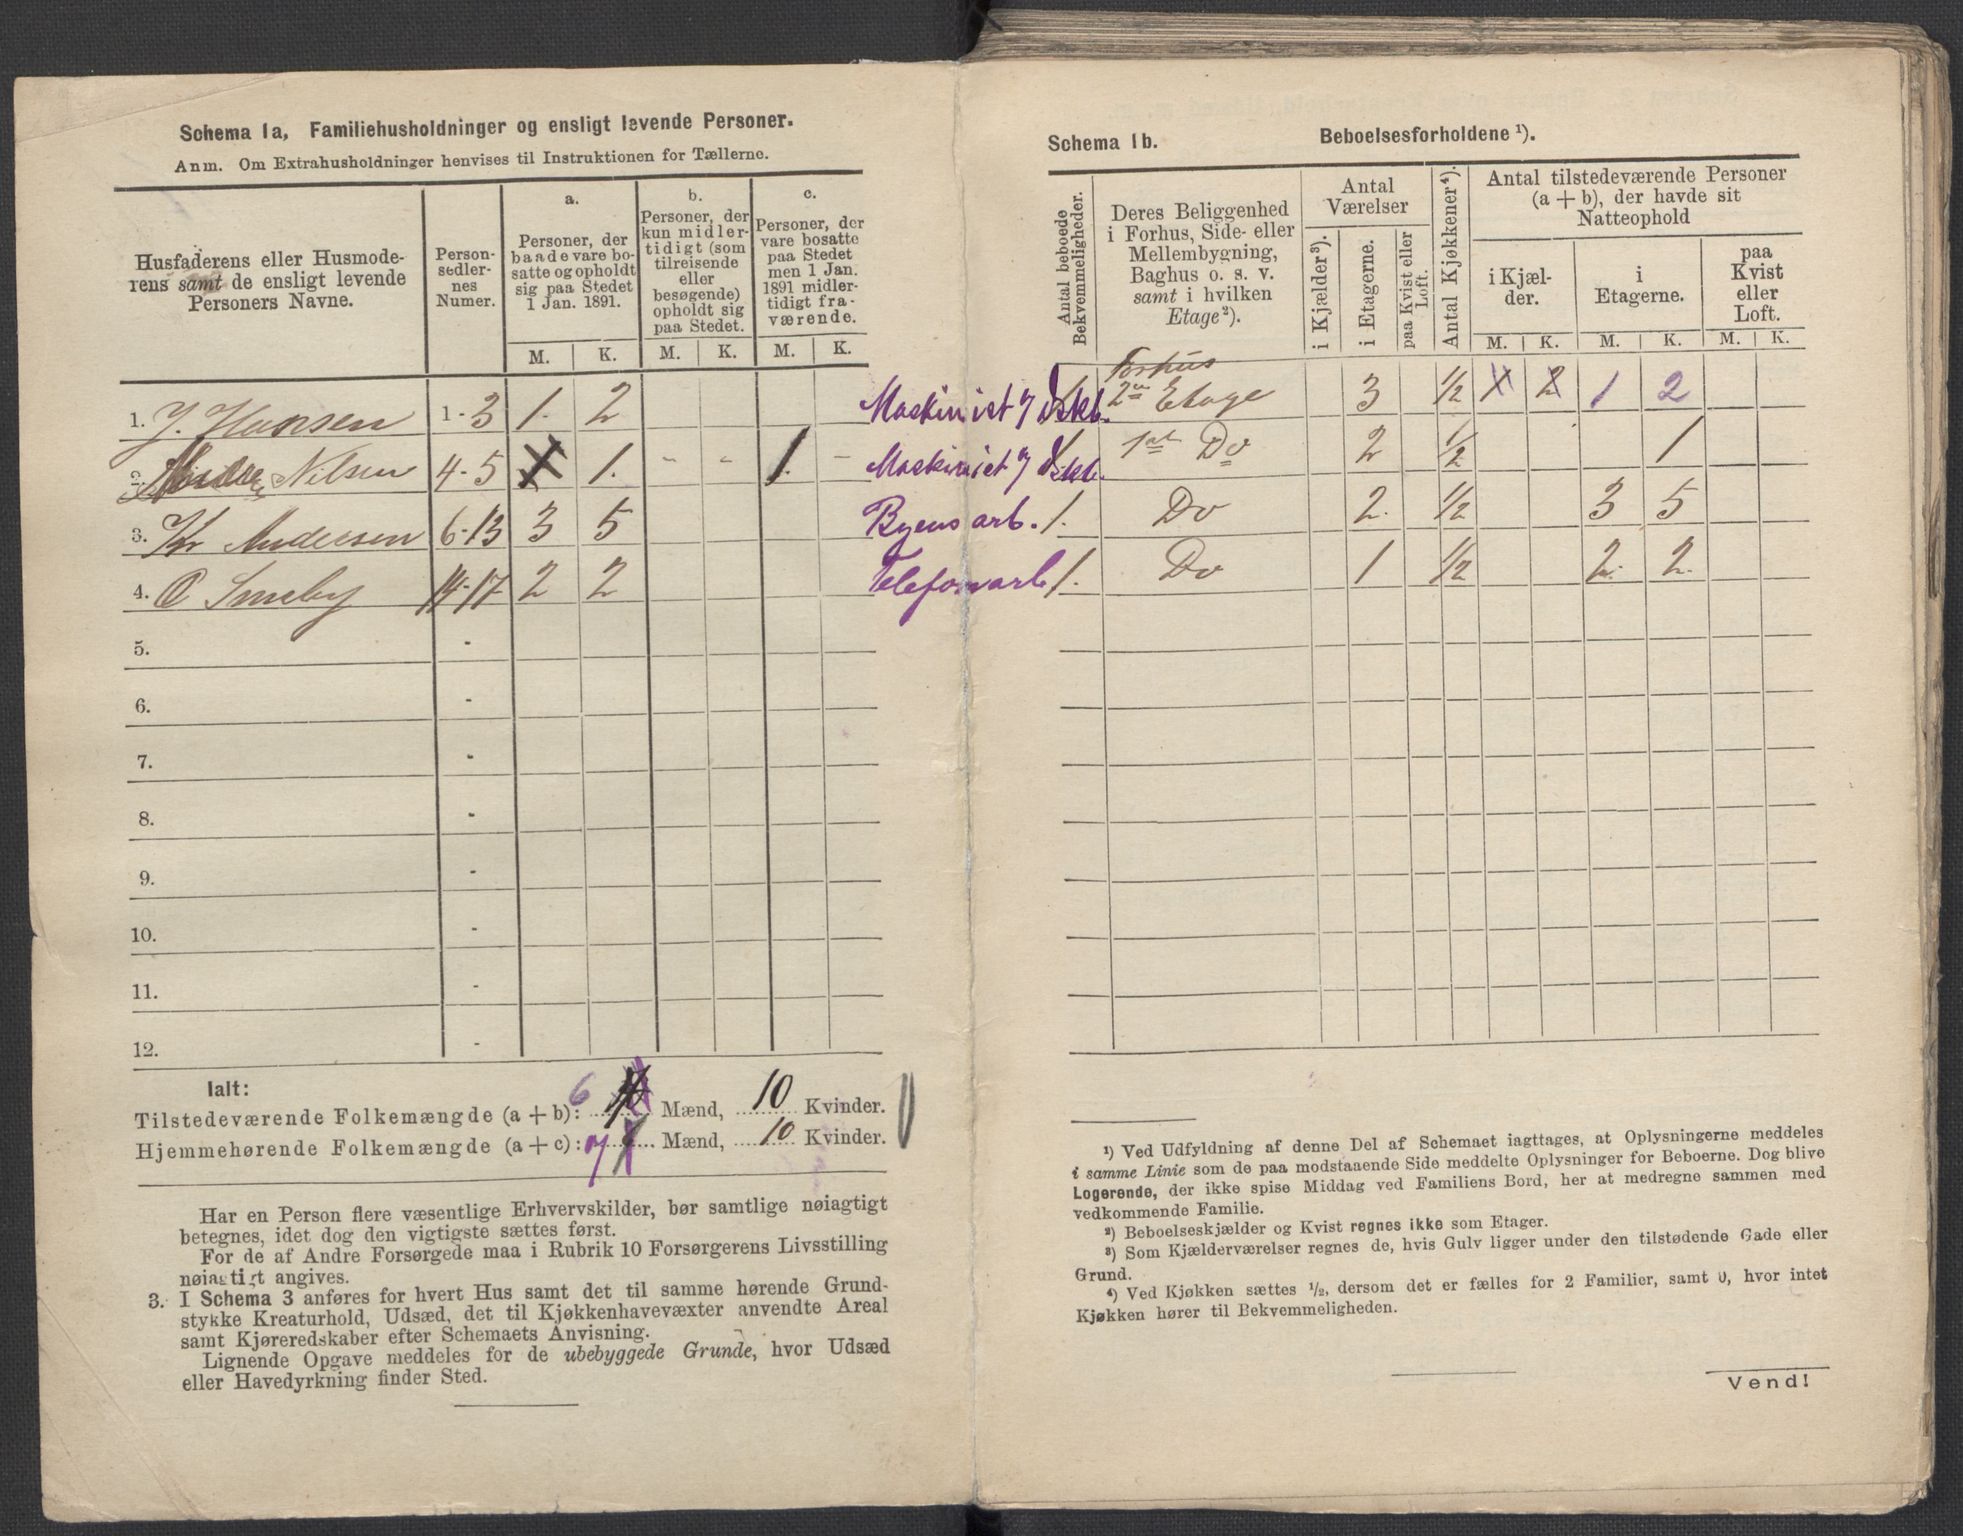 Schema 1a, Familiehusholdninger og ensligt levende Personer.
Anm. Om Extrahusholdninger henvises til Instruktionen for Tællerne.
Husfaderens eller Husmode-
rens samt de ensligt levende
Personers Navne.
Person-
sedler-
nes
Numer.
a.
Personer, der
baade vare bo-
satte og opholdt
sig paa Stedet
1 Jan. 1891.
b.
Personer, der
kun midler-
tidigt (som
tilreisende
eller
besøgende)
opholdt sig
paa Stedet.
c.
Personer, der
vare bosatte
paa Stedet
men 1 Jan.
1891 midler-
tidigt fra-
værende.
M. K. M. K. M. K.
1. J. Hansen 1-3 1. 2
2. Nilsen 4-5 1. - - 1. -
3. Kr Andersen 6-13 3 5
4. O Smeby 14-17 2 2
5. -
6. -
7. -
8. -
9. -
10. -
11. -
12. -
Ialt:
Tilstedeværende Folkemængde (a + b): 6 Mænd, 10 Kvinder.
Hjemmehørende Folkemængde (a + c): 7 Mænd, 10 Kvinder.
Har en Person flere væsentlige Erhvervskilder, bør samtlige nøiagtigt
betegnes, idet dog den vigtigste sættes først.
For de af Andre Forsørgede maa i Rubrik 10 Forsørgerens Livsstilling
nøiagtigt angives.
3. I Schema 3 anføres for hvert Hus samt det til samme hørende Grund-
stykke Kreaturhold, Udsæd, det til Kjøkkenhavevæxter anvendte Areal
samt Kjøreredskaber efter Schemaets Anvisning.
Lignende Opgave meddeles for de ubebyggede Grunde, hvor Udsæd
eller Havedyrkning finder Sted.
Schema 1b. Beboelsesforholdene ¹).
Antal beboede
Bekvemmeligheder.
Deres Beliggenhed
i Forhus, Side- eller
Mellembygning,
Baghus o. s. v.
samt i hvilken
Etage²).
Antal
Værelser
i Kjælder³).
i Etagerne.
paa Kvist eller
Loft.
Antal Kjøkkener⁴).
Antal tilstedeværende Personer
(a + b), der havde sit
Natteophold
i Kjæl-
der.
i
Etagerne.
paa
Kvist
eller
Loft.
M. K. M. K. M. K.
Forhus
Maskinist 1 2en Etage 3 1/2 1 2 1 2
Maskinist 1 1st Do 2 1/2 1
Byens arb. 1. Do 2. 1/2 3 5
Telefonarb 1. Do 1 1/2 2. 2.
¹) Ved Udfyldning af denne Del af Schemaet iagttages, at Oplysningerne meddeles
i samme Linie som de paa modstaaende Side meddelte Oplysninger for Beboerne. Dog blive
Logerende, der ikke spise Middag ved Familiens Bord, her at medregne sammen med
vedkommende Familie.
²) Beboelseskjælder og Kvist regnes ikke som Etager.
³) Som Kjælderværelser regnes de, hvis Gulv ligger under den tilstødende Gade eller
Grund.
⁴) Ved Kjøkken sættes ½, dersom det er fælles for 2 Familier, samt 0, hvor intet
Kjøkken hører til Bekvemmeligheden.
Vend!